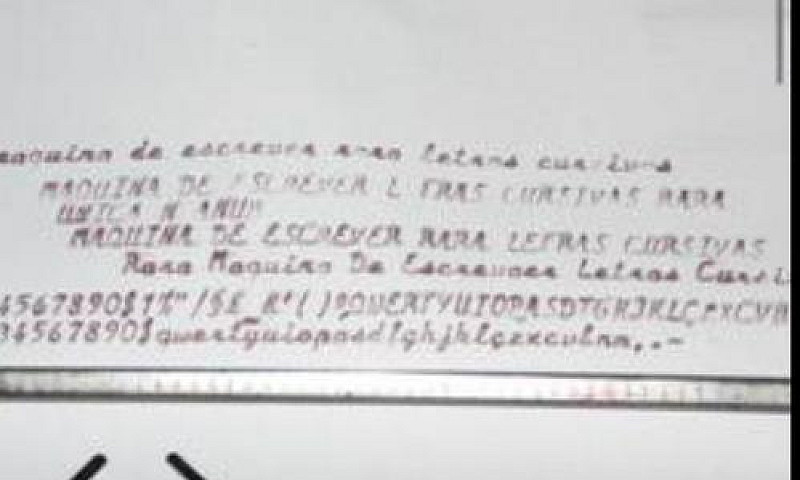 maquina de escrever rara letras cursivas
MAQUINA DE ESCREVER LETRAS CURSIVAS RARA
UNICA N
MAQUINA DE ESCREVER RARA LETRAS CURSIVAS
Rara Maquina De Escrever Letras Cursi
4567890$1%"/§£ &'()ºQWERTYUIOPASDFGHJKLÇZXCVB
34567890$qwertyuiopasdfghjklçzxcvbnm,.-